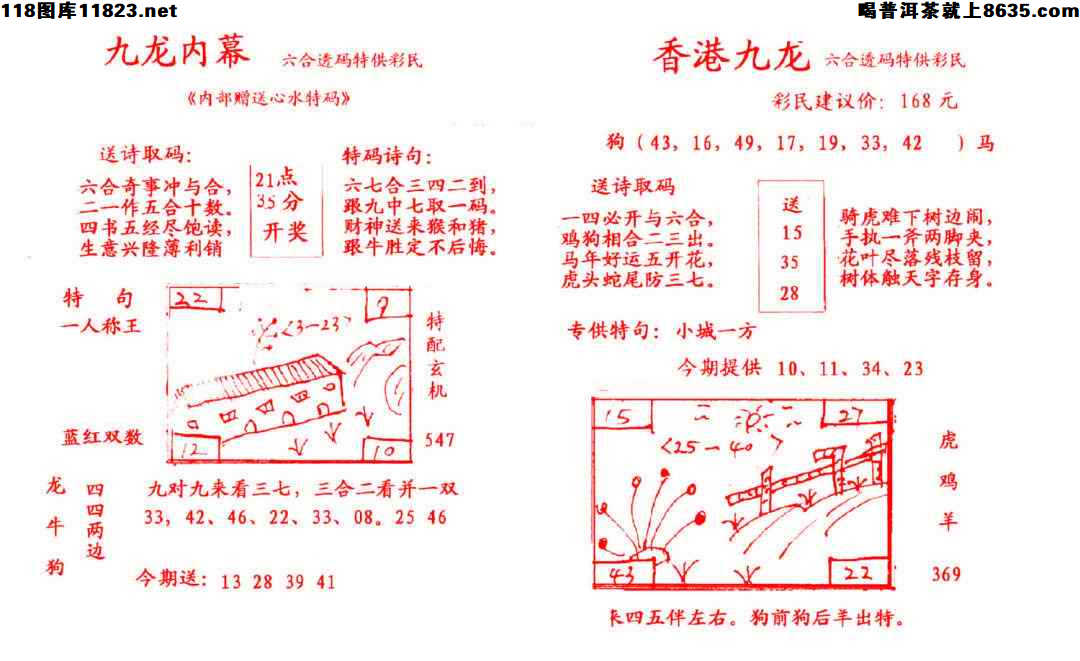 118图库11823.net
喝普洱茶就上8635.com
九龙内幕 六合透码特供彩民
《内部赠送心水特码》
送诗取码:
六合奇事冲与合，
二一作五合十数。
四书五经尽饱读，
生意兴隆薄利销
21点
35分
开奖
特码诗句:
六七合三四二到，
跟九中七取一码。
财神送来猴和猪，
跟牛胜定不后悔。
特 句
一人称王
蓝红双数
22
9
<3-23>
12
10
特配玄机
547
龙牛狗
四四两边
九对九来看三七，三合二看并一双
33, 42、46、22、33、08。25 46
今期送: 13 28 39 41
香港九龙 六合透码特供彩民
彩民建议价: 168 元
狗（43, 16, 49, 17, 19, 33, 42 ）马
送诗取码
一四必开与六合，
鸡狗相合二三出。
马年好运五开花，
虎头蛇尾防三七。
送
15
35
28
骑虎难下树边闹，
手执一斧两脚夹，
花叶尽落残枝留，
树体触天字存身。
专供特句: 小城一方
今期提供 10、11、34、23
15
27
<25-40>
43
22
虎
鸡
羊
369
四五伴左右。狗前狗后羊出特。